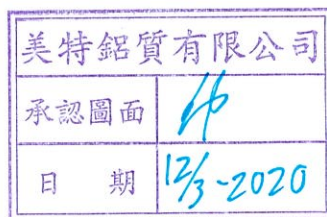 美特鋁質有限公司
承認圖面
日 期 12/3-2020